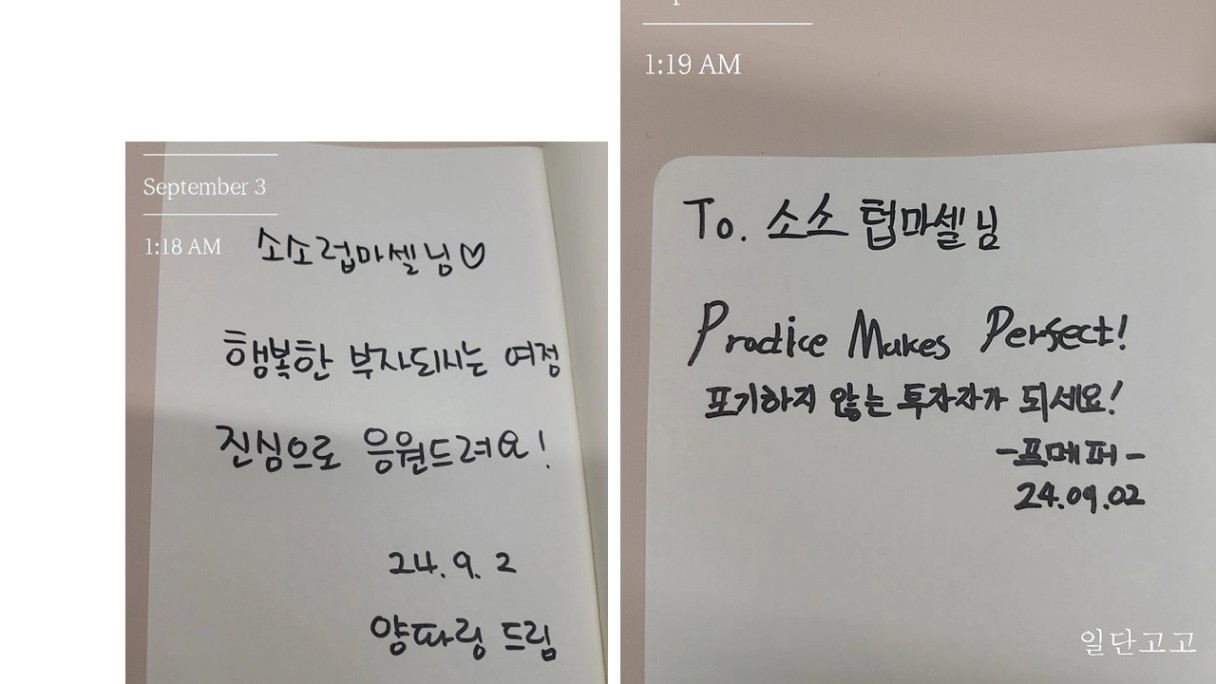 September 3
1:18 AM
소소럽마셀님♡
행복한 부자되시는 여정
진심으로 응원드려요!
24. 9. 2
양따링 드림
1:19 AM
To. 소소 텁마셀님
Practice Makes Perfect!
포기하지 않는 투자자가 되세요!
-프메퍼-
24.09.02
일단고고